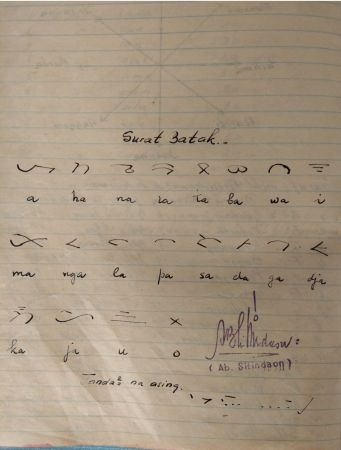 Surat Batak..
ᯀ ᯂ ᯉ ᯒ ᯖ ᯅ ᯋ ᯤ
a ha na ra ta ba wa i
ᯔ ᯝ ᯞ ᯇ ᯘ ᯑ ᯎ ᯐ
ma nga la pa sa da ga dja
ᯂ᯦ ᯛ ᯥ ×
ka ja u o
Tanda² na asing.
( Ab. Sitindaon )